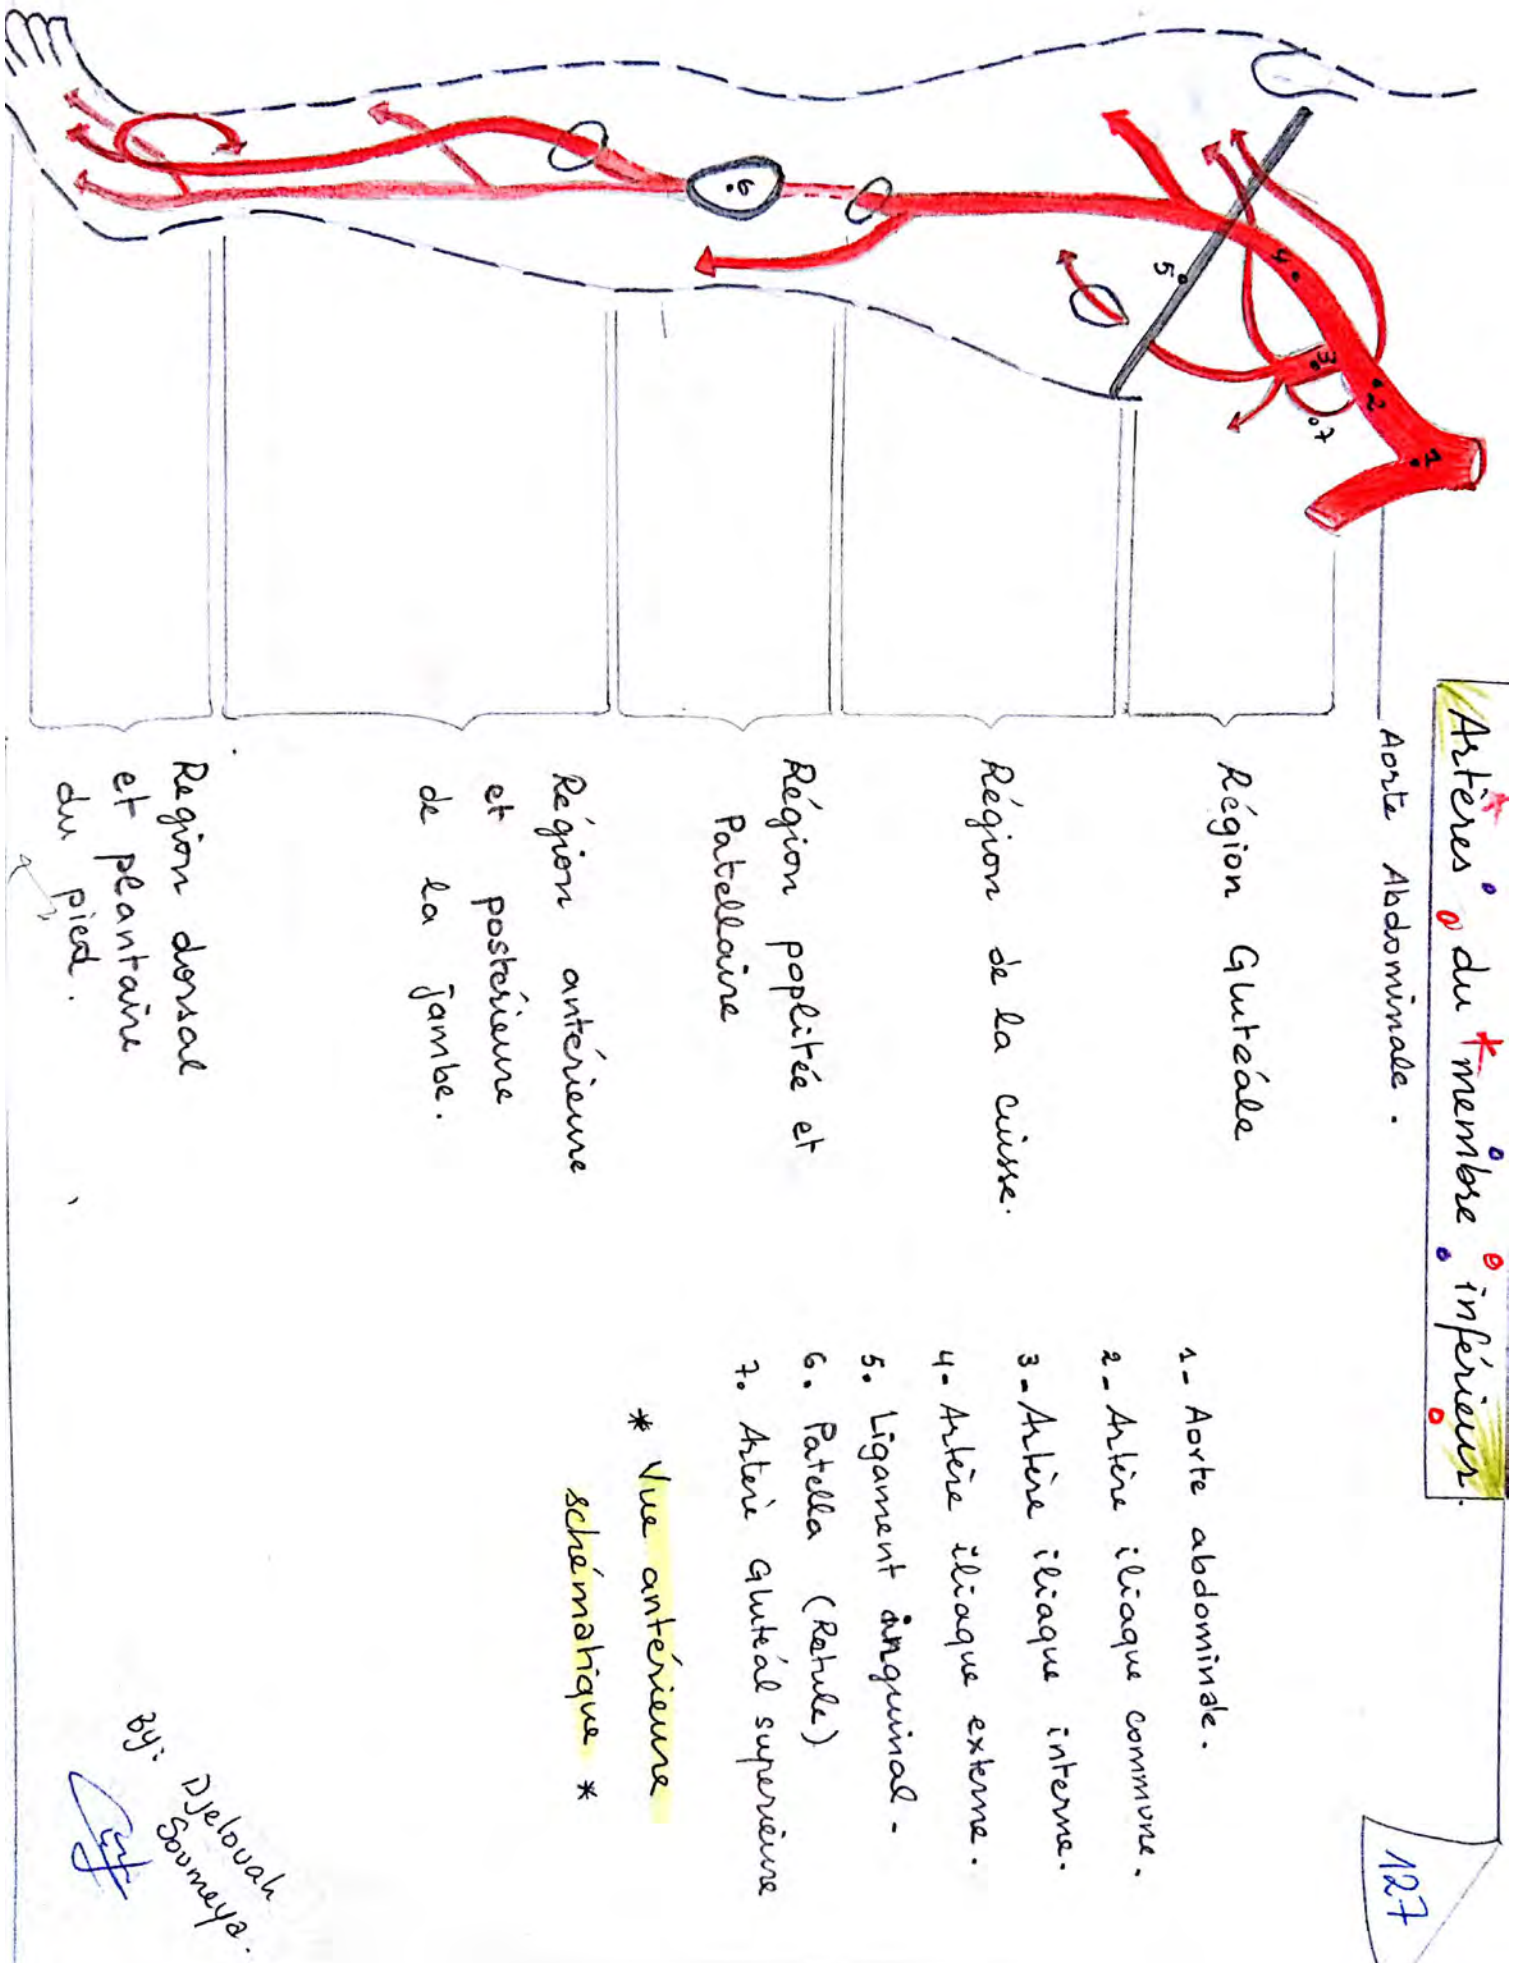 Artères du membre inférieur.
127
Aorte Abdominale.
Région Glutéale
Région de la cuisse.
Région poplitée et
Patellaire
Région antérieure
et postérieure
de la jambe.
Région dorsal
et plantaire
du pied.
1- Aorte abdominale.
2- Artère iliaque commune.
3- Artère iliaque interne.
4- Artère iliaque externe.
5. Ligament inguinal-
6. Patella (Rotule)
7. Arterè Glutéal superieure
* Vue antérieure
schématique *
1
2
3
4
5
6
7
By: Djelouah
Soumeya.